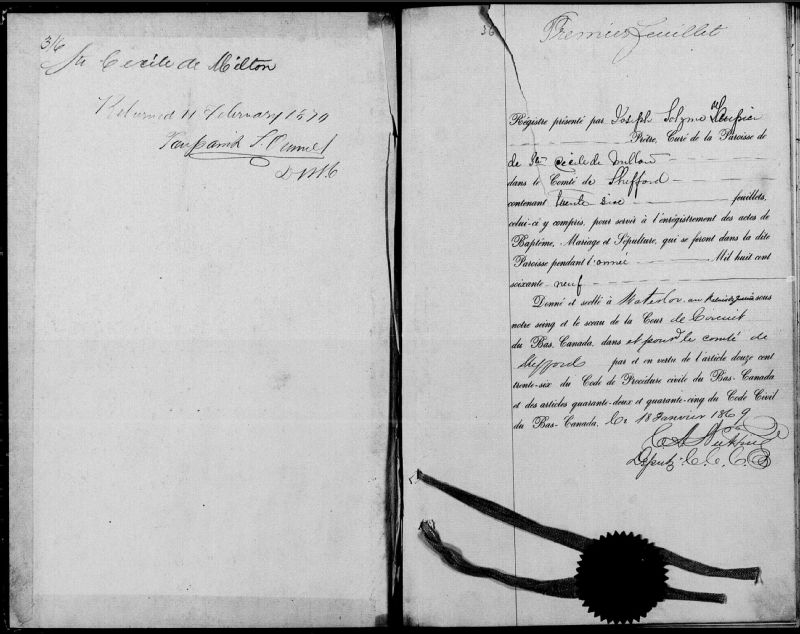 316
Ste Cécile de Milton
Returned 11 February 1870
36
Premier feuillet
Régistre présenté par Joseph Solyme
Prêtre, Curé de la Paroisse de
de Ste Cécile de Milton
dans le Comté de Shefford
contenant trente six feuillets,
celui-ci y compres, pour servir à l'enrégistrement des actes de
Baptême, Mariage et Sépulture, qui se feront dans la dite
Paroisse pendant l'année Mil huit cent
soixante-neuf
Donné et scellé à Waterloo sous
notre seing et le sceau de la Cour de Circuit
du Bas-Canada, dans et pour le comté de
Shefford par et en vertu de l'article douze cent
trente-six du Code de Procédure civile du Bas-Canada
et des articles quarante-deux et quarante-cinq du Code Civil
du Bas-Canada. Ce 18 Janvier 1869
Deputy C. C. C.